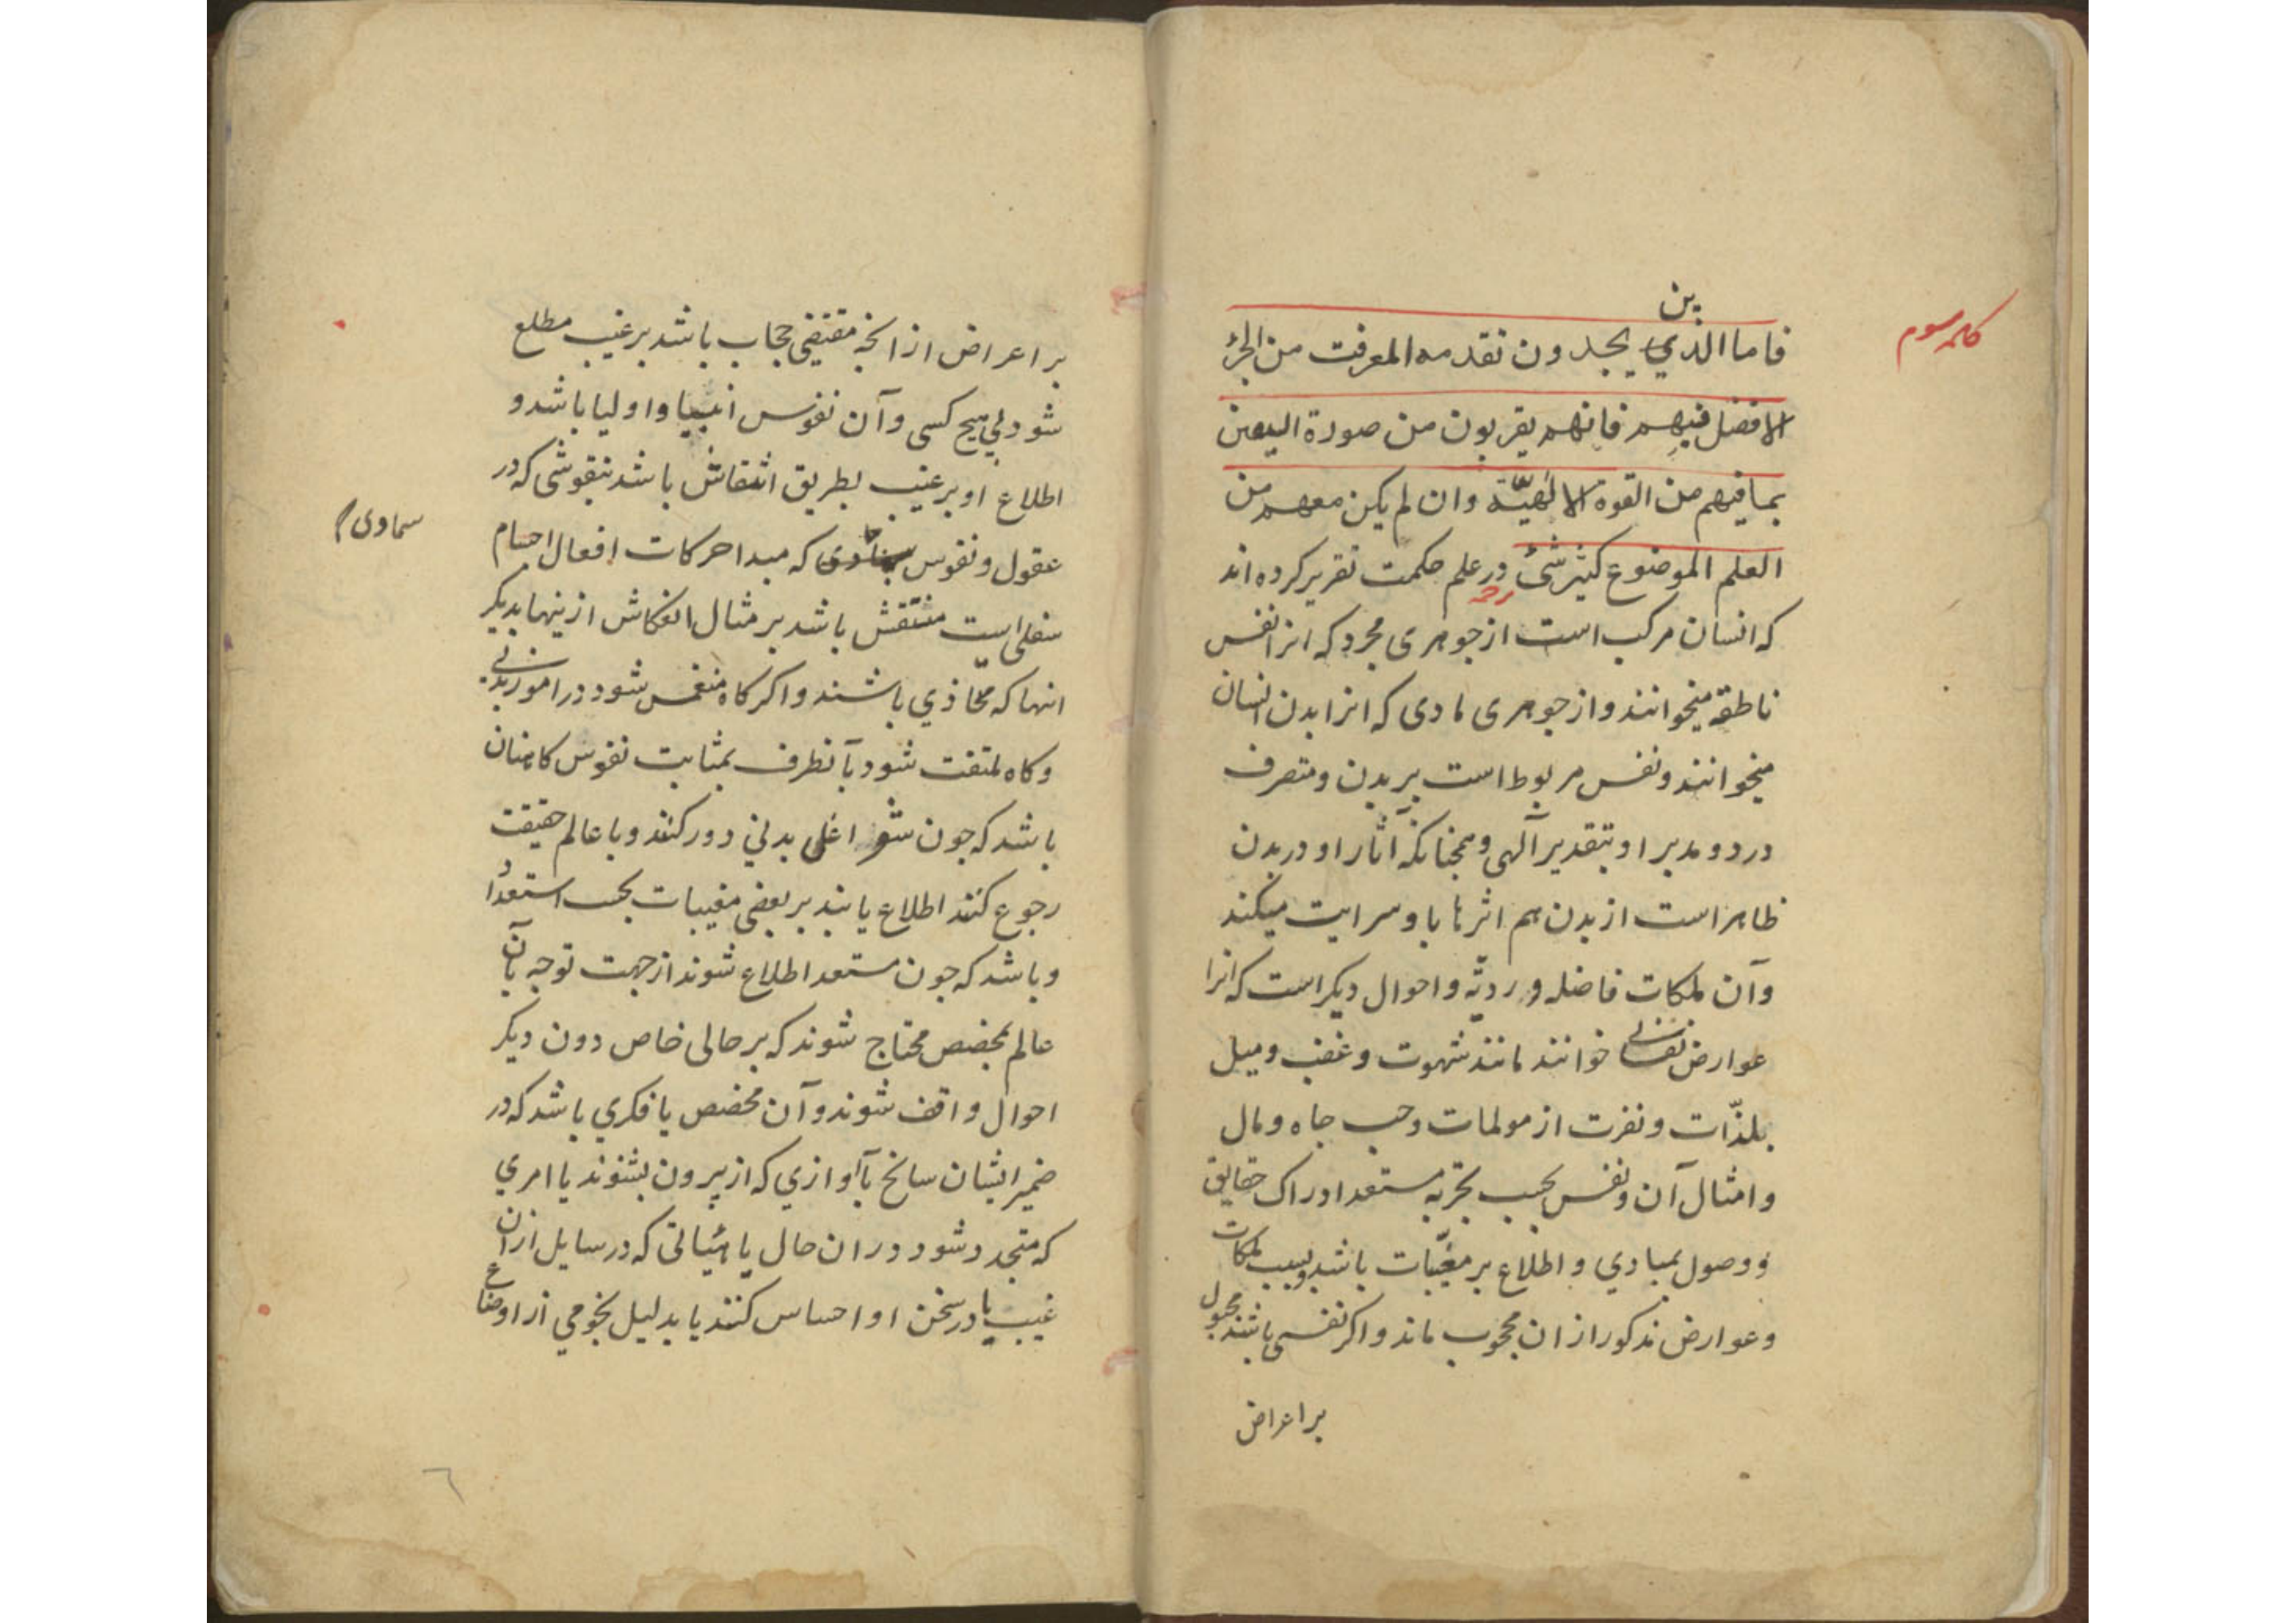 کلمه سوم
ین
فاما الذی یجدون تقدمه المعرفت من الجزء
الافضل فیهم فانهم یقربون من صورة الیقین
بما فیهم من القوة الالٰهیّة وان لم یکن معهم من
العلم الموضوع کثیر شئ در علم حکمت تقریر کرده اند
شرح
که انسان مرکب است از جوهری مجرد که انرا نفس
ناطقه میخوانند و از جوهری مادی که انرا بدن انسان
میخوانند و نفس مربوط است بر بدن و متصرف
درد و مدبر او بتقدیر آلهی و همچنانکه آثار او در بدن
ظاهر است از بدن هم اثرها باو سرایت میکند
وآن ملکات فاضله و ردیّه و احوال دیگر است که انرا
عوارض نفسانی خوانند مانند شهوت و غضب و میل
بلذّات و نفرت از مولمات وحب جاه و مال
و امثال آن و نفس بحسب تجربه مستعد ادراک حقایق
و وصول بمبادي و اطلاع بر مغیّبات باشد و بسبب ملکات
و عوارض مذکور از ان محجوب ماند و اکر نفسی باشد مجبول
بر اعراض
بر اعراض از انچه مقتضی حجاب باشد بر غیب مطلع
شود بي هیچ کسی وآن نفوس انبیا و اولیا باشد و
اطلاع او بر غیب بطریق انتقاش باشد بنقوشی که در
عقول و نفوس که مبدا حرکات افعال اجسام
سماوی
سفلی است منتقش باشد بر مثال انعکاش ازینها بدیکر
انها که محّاذي باشند و اکر کاه منغمس شود در امور بدنی
و کاه ملتفت شود بآنطرف بمثابت نفوس کاهنان
باشد که چون شواغلی بدني دور کنند و با عالم حقیقت
رجوع کنند اطلاع یابند بر بعضی مغیبات بحسب استعداد
و باشد که چون مستعد اطلاع شوند از جهت توجه بآن
عالم بمخصص محتاج شوند که بر حالی خاص دون دیکر
احوال واقف شوند وآن مخصص یا فکري باشد که در
ضمیر ایشان سانح یا آوازي که از بیرون بشنوند یا امري
که متجدد شود در ان حال یا هیأتی که در سایل ازان
غیب یا در سخن او احساس کنند یا بدلیل نجومي از اوضاع
٦